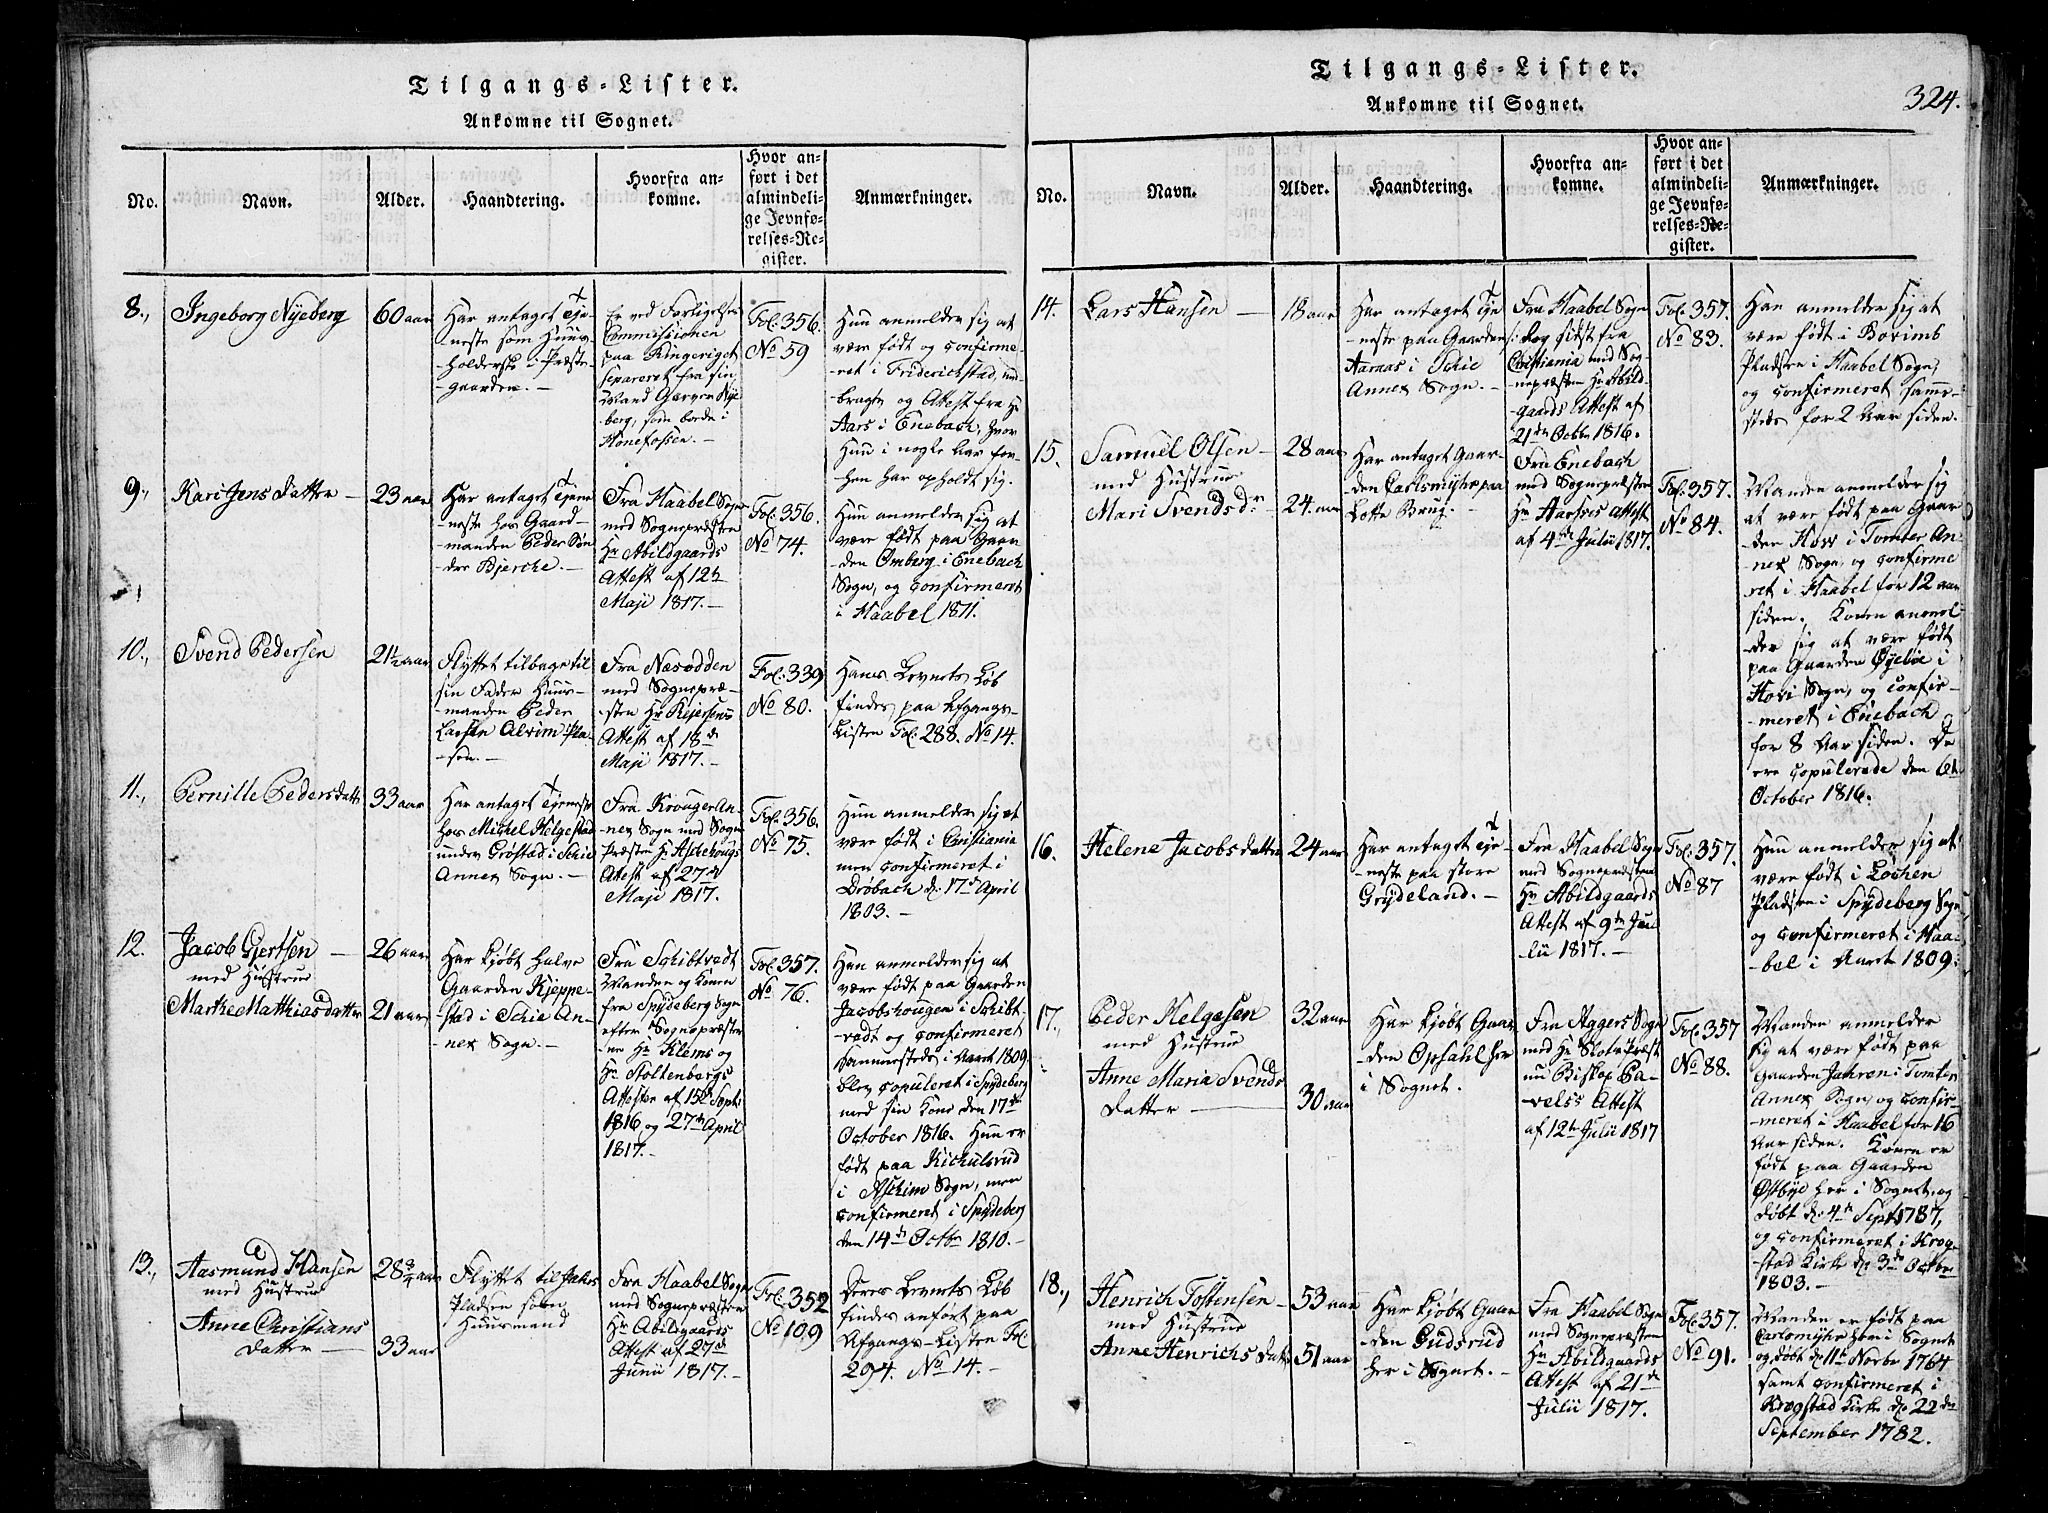 Tilgangs-Lister.
Ankomne til Sognet.
No.
Navn.
Alder.
Haandtering.
Hvorfra an-
komne.
Hvor an-
ført i det
almindeli-
ge Jevnfø-
relses-Re-
gister.
Anmærkninger.
8.,
Ingeborg Nÿeberg
60 aar
Har antaget Tje-
-neste som Huus-
-holderske i Præste-
gaarden.-
Er ved Forligelses
Commissionen
paa Ringeriget
separeret fra sin
Mand Garver Nÿe
berg, som boede i
Hønefossen.-
Fol: 356.
No 59
Hun anmelder sig at
være født og confirme
-ret i Friderichstad, med-
-bragte og Attest fra Hr
Aars i Enebach, hvor
Hun i nogle Aar for-
-hen har opholdt sig.
9.,
Kari Jens datter -
23 aar
Har antaget Tjene
-neste hos Gaard-
-manden Peder Søn
dre Bjerche.-
Fra Haabel Sogn
med Sognepræsten
Hr Abildgaards
Attest af 12te
Maji 1817.-
Fol: 356.
No 74.
Hun anmelder sig at
være født paa Gaar
-den Omberg i Enebach
Sogn, og confirmeret
i Haabel 1811.
10.,
Svend Pedersen
21½ aar
Flyttet tilbage til
sin Fader Huus-
-manden Peder
Larsen Alvim-Pla-
-sen.-
Fra Næsodden
med Sognepræ-
-sten Hr Rejersens
Attest af 18de
Maji 1817.-
Fol: 339
No 80.
Hans Levnets Løb
findes paa Afgangs-
Listen Fol: 288. No 14.
11.,
Pernille Pedersdatter
33 aar
Har antaget Tjeneste
hos Michel Helgestad
under Grøstad i Schie
Annex Sogn.-
Fra Krouger An-
-nex Sogn med Sogne
Præsten Hr Aschehougs
Attest af 27de
Maji 1817.
Fol: 356.
No 75.
Hun anmelder sig at
være født i Christiania
men confirmeret i
Drøbach d. 17de April
1803.-
12.
Jacob Gjertsen -
med Hustrue
Marthe Mathiasdatter
26 aar
21 aar
Har kjøbt halve
Gaarden Kjeppe-
-stad i Schie An-
-nex Sogn.-
Fra Schibtvedt
Manden og Konen
fra Spydeberg Sogn
efter Sognepræster
-ne Hr Klems og
Hr Stoltenbergs
Attester af 15de Septbr
1816 og 27de April
1817.-
Fol: 357.
No 76.
Han anmelder sig at
være født paa Gaarden
Jacobshougen i Schibt-
-vedt og confirmeret
sammestæds i Aaret 1809
blev copuleret i Spydeberg
med sin Kone den 17de
October 1816. Hun er
født paa Kichulsrud
i Aschim Sogn, men
confirmeret i Spydeberg
den 14de Octbr 1810.-
13.,
Aasmund Hansen
med Hustrue
Anne Christians
datter -
28¾ aar
33 aar
Flyttet til Jahrs
Pladsen som
Huusmand
Fra Haabel Sogn
med Sognepræsten
Hr Abilsgaards
Attest af 27de
Junii 1817.-
Fol: 352
No 109
Deres Levnets Løb
findes anført paa
Afgangs-Listen Fol:
294. No 14.-
Tilgangs-Lister.
Ankomne til Sognet.
324.
No.
Navn.
Alder.
Haandtering.
Hvorfra an-
komne.
Hvor an-
ført i det
almindeli-
ge Jevnfø-
relses-Re-
gister.
Anmærkninger.
14.
Lars Hansen -
18 aar
Har antaget Tje
-neste paa Gaarden
Aarnæs i Schie
Annex Sogn.-
Fra Haabel Sogn
dog sidst fra
Christiania med Sog-
nepræsten Hr Abild-
gaards Attest af
21de Octbr 1816.
Fol: 357.
No 83.
Han anmelder sig at
være født i Bovimb
Pladsen i Haabel Sogn,
og confirmeret samme-
steds for 2 Aar siden.
15.
Samuel Olsen -
med Hustrue
Mari Svendsdr
28 aar
24 aar
Har antaget Gaar-
den Carlsmÿhr paa
Lotte Brug.-
Fra Enebach
med Sognepræsten
Hr Aarses Attest
af 4de Julii 1817.
Fol: 357.
No 84.
Manden anmelder sig
at være født paa Gaar
-den How i Tomter An-
nex Sogn, og confirme
ret i Haabel for 12 aar
siden. Konen anmel-
-der sig at være født
paa Gaarden Øÿebøe i
Hovi Sogn, og confir-
-meret i Enebach
for 8 Aar siden. De
ere copulerede den 6te
October 1816.
16.
Helene Jacobsdatter
24 aar
Har antaget Tje-
-neste paa store
Grÿdeland.-
Fra Haabel Sogn
med Sognepræsten
Hr Abildgaards
Attest af 9de Ju-
lii 1817.-
Fol: 357.
No 87
Hun anmelder sig at
være født i Løchen
Pladsen i Spÿdeberg Sogn,
og confirmeret i Haa-
-bel i Aaret 1809.
17.,
Peder Helgesen
med Hustrue
Anne Maria Svends
datter -
32 aar
30 aar
Har kjøbt Gaar
-den Opsahl her
i Sognet.
Fra Aggers Sogn
med Hr Slots Præst
nu Biskop Pa-
-vels's Attest
af 12te Julii 1817
Fol: 357
No 88.
Manden anmelder
sig at være født paa
Gaarden Jahren i Tomter
Annex Sogn, og confir-
-meret i Haabel for 16
Aar siden. Konen er
født paa Gaarden
Østbÿe her i Sognet, og
døbt d. 4de Sept. 1787,
og confirmeret i Krog-
stad Kirke d. 3de Octbr
1803.-
18.,
Henrich Tostensen -
med Hustrue
Anne Henrichs datter
53 aar
51 aar
Har kjøbt Gaar
-den Gudsrud
her i Sognet.-
Fra Haabel Sogn
med Sognepræsten
Hr Abildgaards
Attest af 21de
Julii 1817.
Fol: 357.
No 91.
Manden er født paa
Carlsmÿhr her i Sognet
og døbt d. 11te Novbr 1764
samt confirmeret i
Krogstad Kirke d. 22de
September 1782.